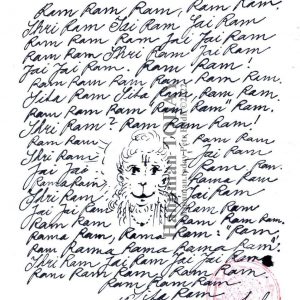 Ram Ram Ram, Ram Ram
Shri Ram Jai Ram Jai Ram
Ram Ram Ram Jai Jai Ram
Ram Ram Shri Ram Jai Ram
Jai Jai Ram. Ram "Ram!
Ram Ram Ram Ram Ram Ram.
Sita Ram Sita Ram Ram Ram.
Ram Ram Ram Ram Ram" Ram.
Shri Ram? Ram Ram Ram!
Ram Ram Ram Ram Ram
Shri Ram Jai Ram
Jai Jai Ram Ram
Rama Ram Ram Ram.
Shri Ram Ram Ram
Jai Jai Ram Ram Ram
Ram Ram Ram Ram Ram.
Rama Rama, Ram: "Ram.
Ram Rama Rama Rama Ram".
Shri Ram Jai Ram Jai Jai Ram
Ram Ram Ram Ram Ram
Ram Ram Ram
Sita Ram
Hanuman